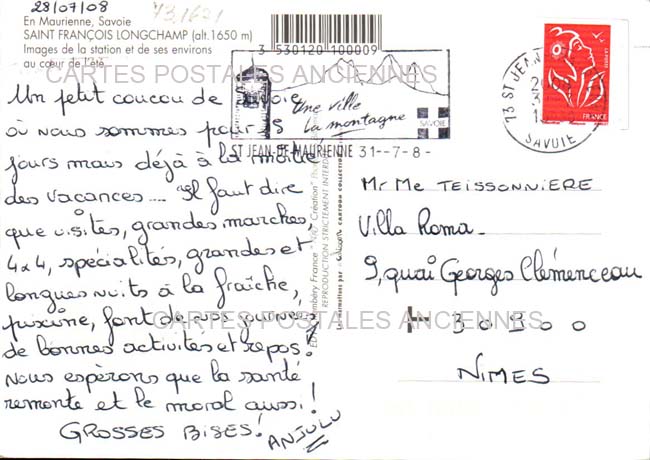 28/07/08
73/1621
En Maurienne, Savoie
SAINT FRANÇOIS LONGCHAMP (alt. 1650 m)
Images de la station et de ses environs
au cœur de l'été
3 530120 100009
CARTES POSTALES ANCIENNES
Un petit coucou de Savoie
où nous sommes pour 15
jours mais déjà à la moitié
des vacances .... Il faut dire
que visites, grandes marches,
4x4, spécialités, grandes et
longues nuits à la fraîche,
piscine, font de nos journées
de bonnes activités et repos!
Nous espérons que la santé
remonte et le moral aussi!
GROSSES BISES!
ANJULU
Une ville
La montagne
SAVOIE
ST JEAN-DE-MAURIENNE 31--7-8-
73 ST JEAN
SAVOIE
LA POSTE
FRANCE
Chambéry France -
Création
REPRODUCTION STRICTEMENT INTERDITE
CARTOON COLLECTION
Mr Me TEISSONNIERE
Villa Roma.
9, quai Georges Clémenceau
30900
NIMES
CARTES POSTALES ANCIENNES